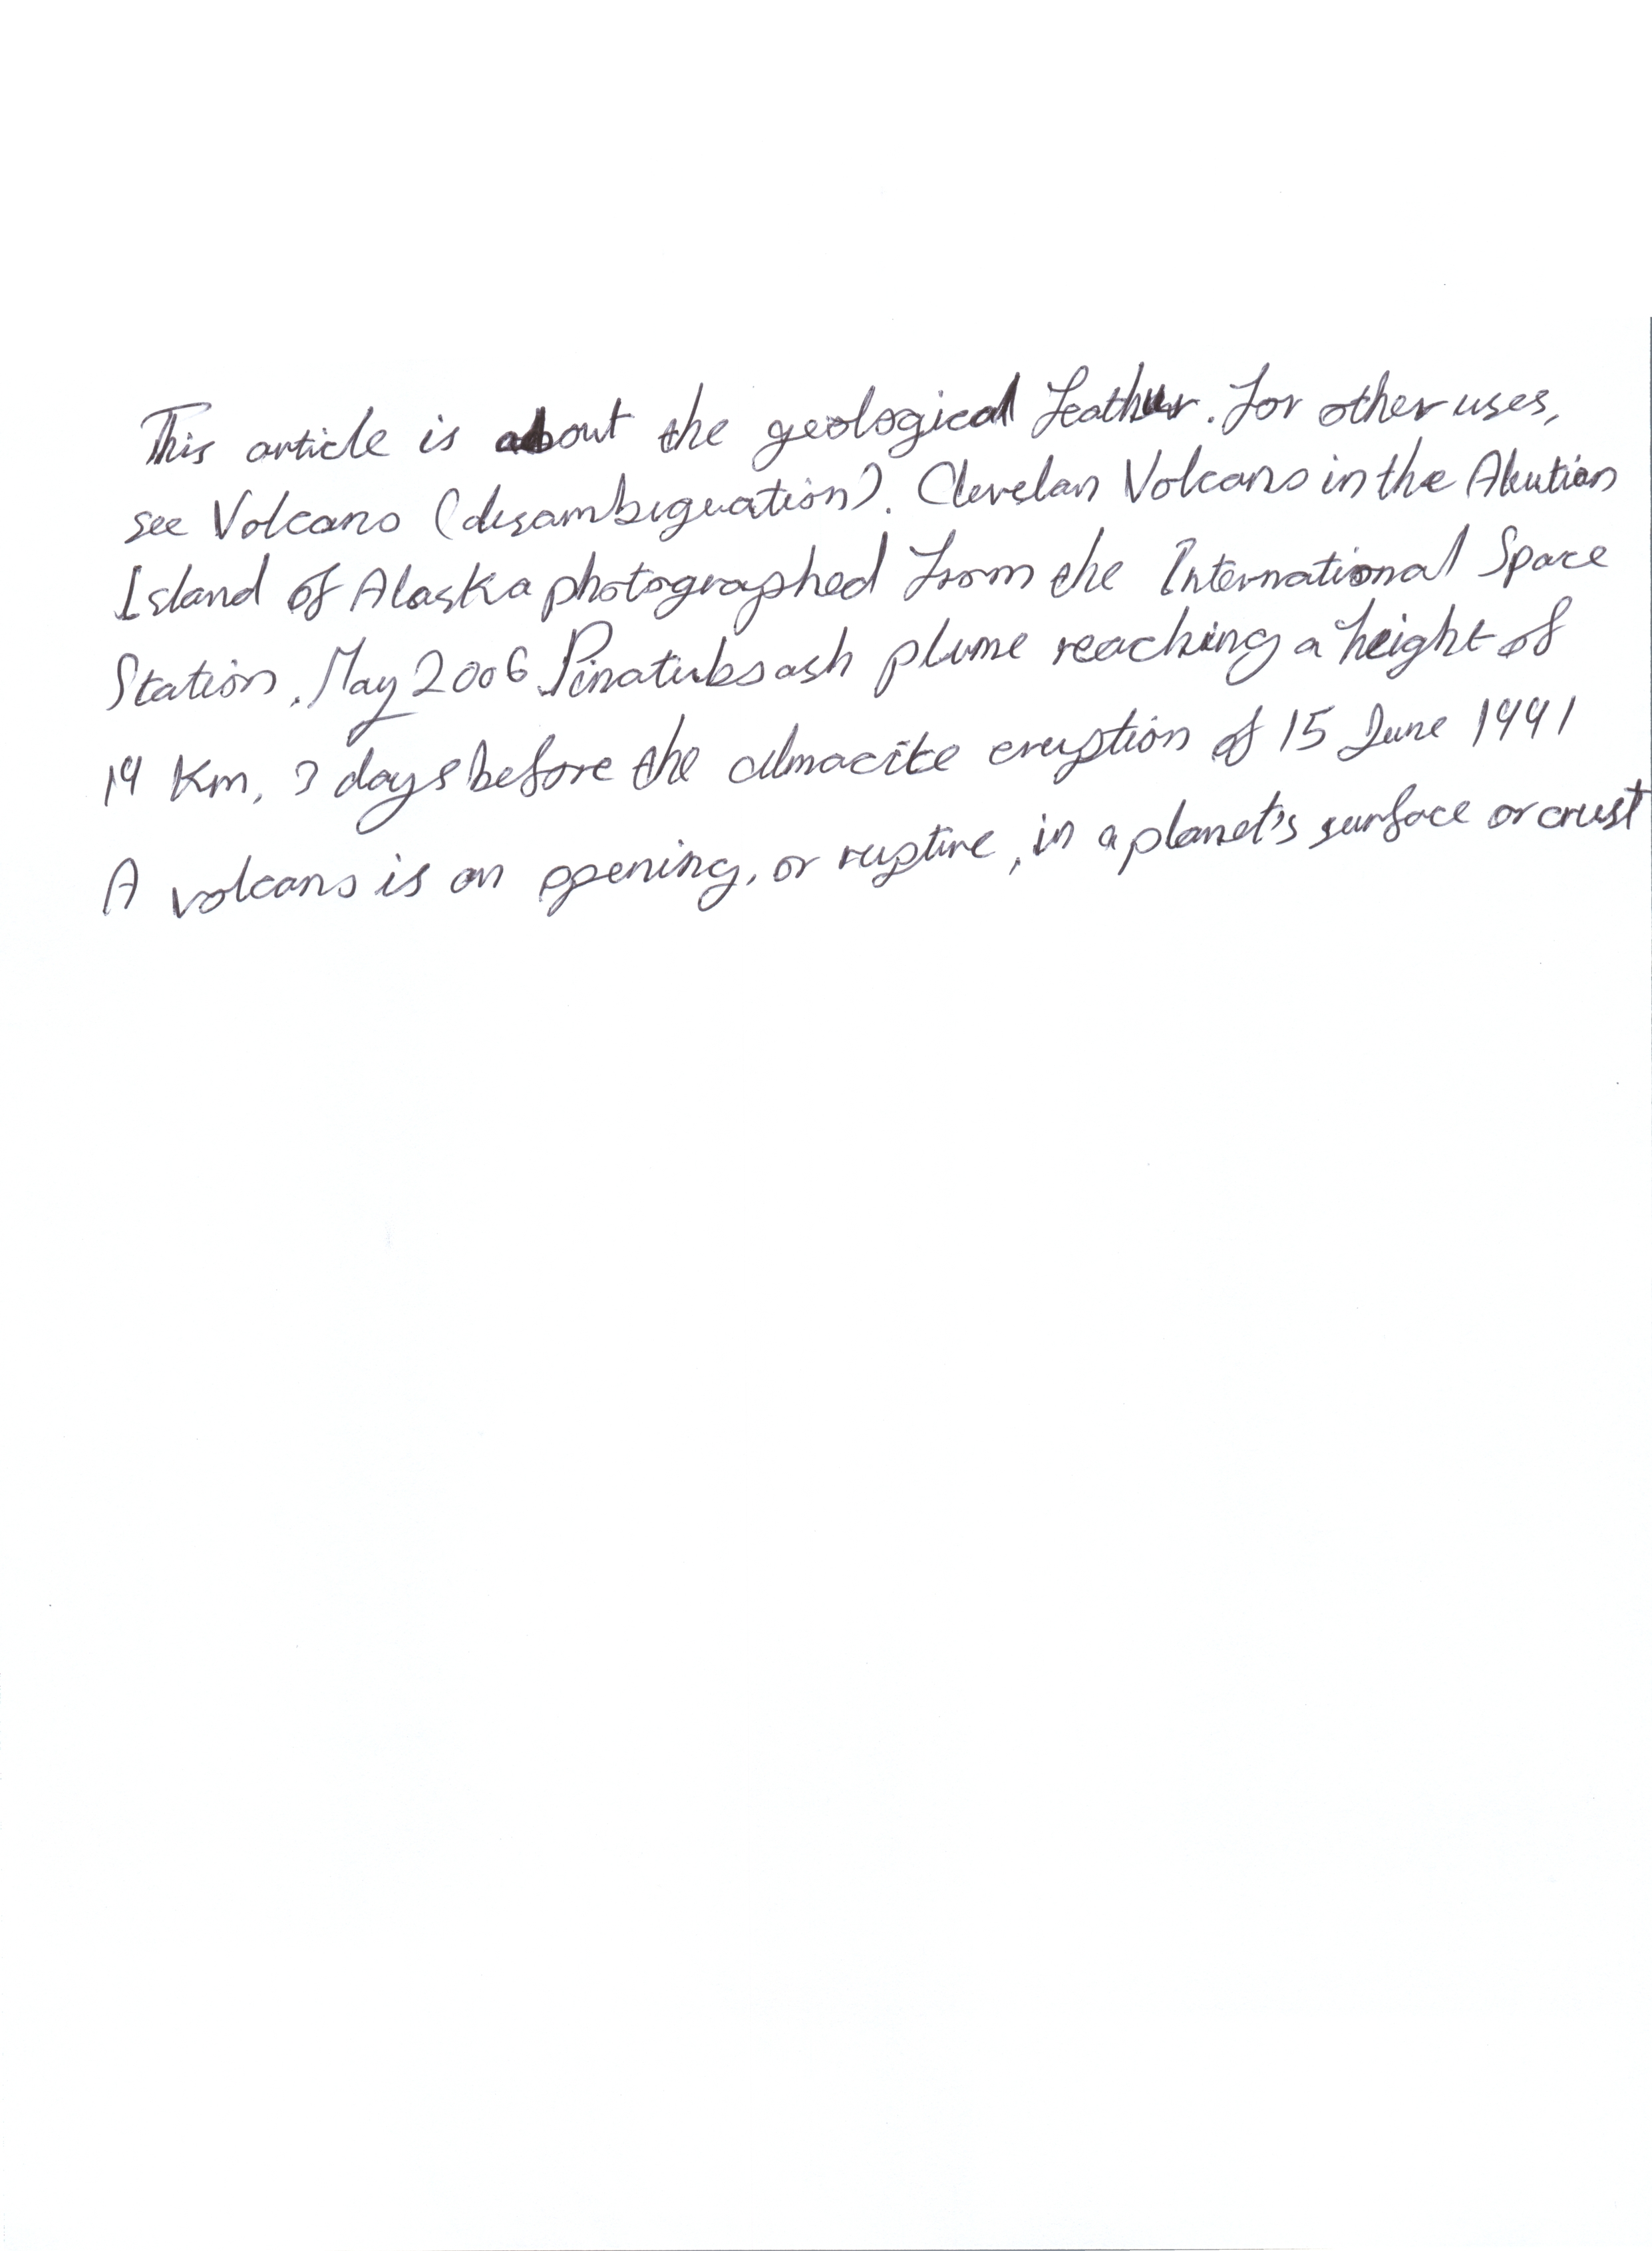 This article is about the geological feathur. for other uses,
see Volcano (disambiguation). Clevelan Volcano in the Aleutian
Island of Alaska photographed from the International Space
Station. May 2006 Pinatubo ash plume reaching a height of
19 Km, 3 days before the climacite eruption of 15 June 1991
A volcano is an opening, or rupture, in a planet's surface or crust